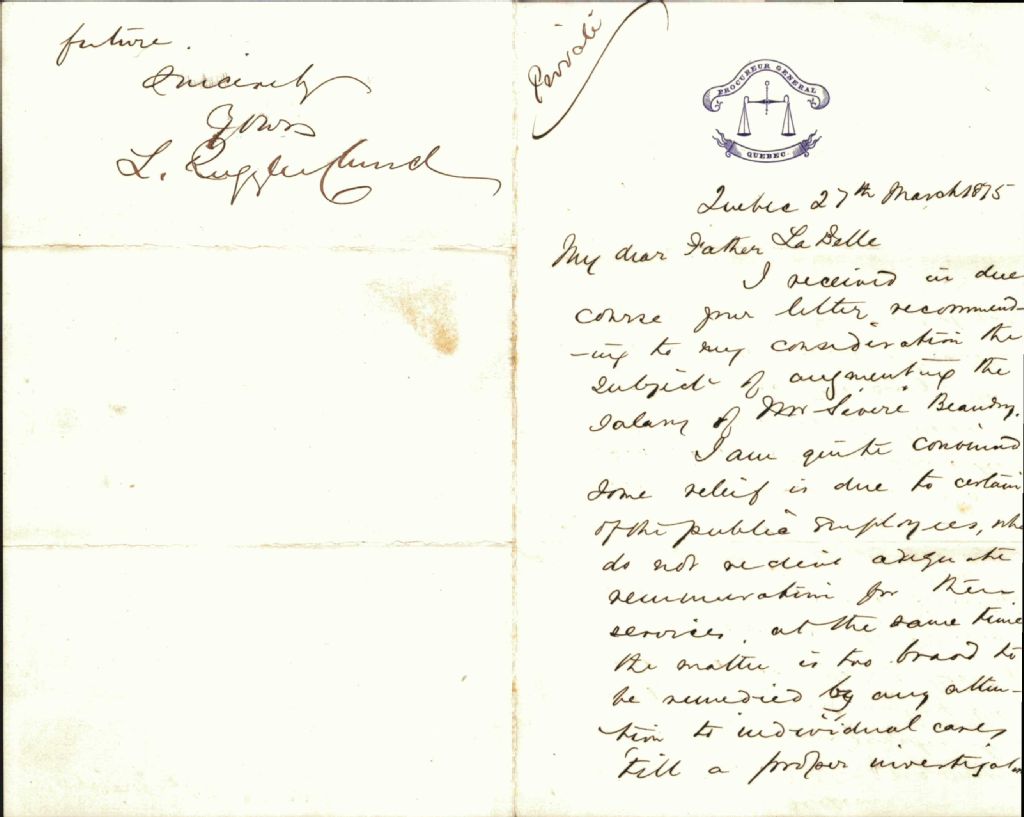 future.
Sincerely
Yours
L. Ruggles Church
Private
PROCUREUR GENERAL
QUEBEC
Quebec 27th March 1875
My dear Father LaBelle
I received in due
course your letter, recommend-
-ing to my consideration the
subject of augmenting the
salary of Mr Sévère Beaudry.
I am quite convinced
some relief is due to certain
of the public employees, wh
do not receive adequate
remuneration for their
services, at the same time
the matter is too broad to
be remedied by any atten-
-tion to individual cases
'till a proper investigat